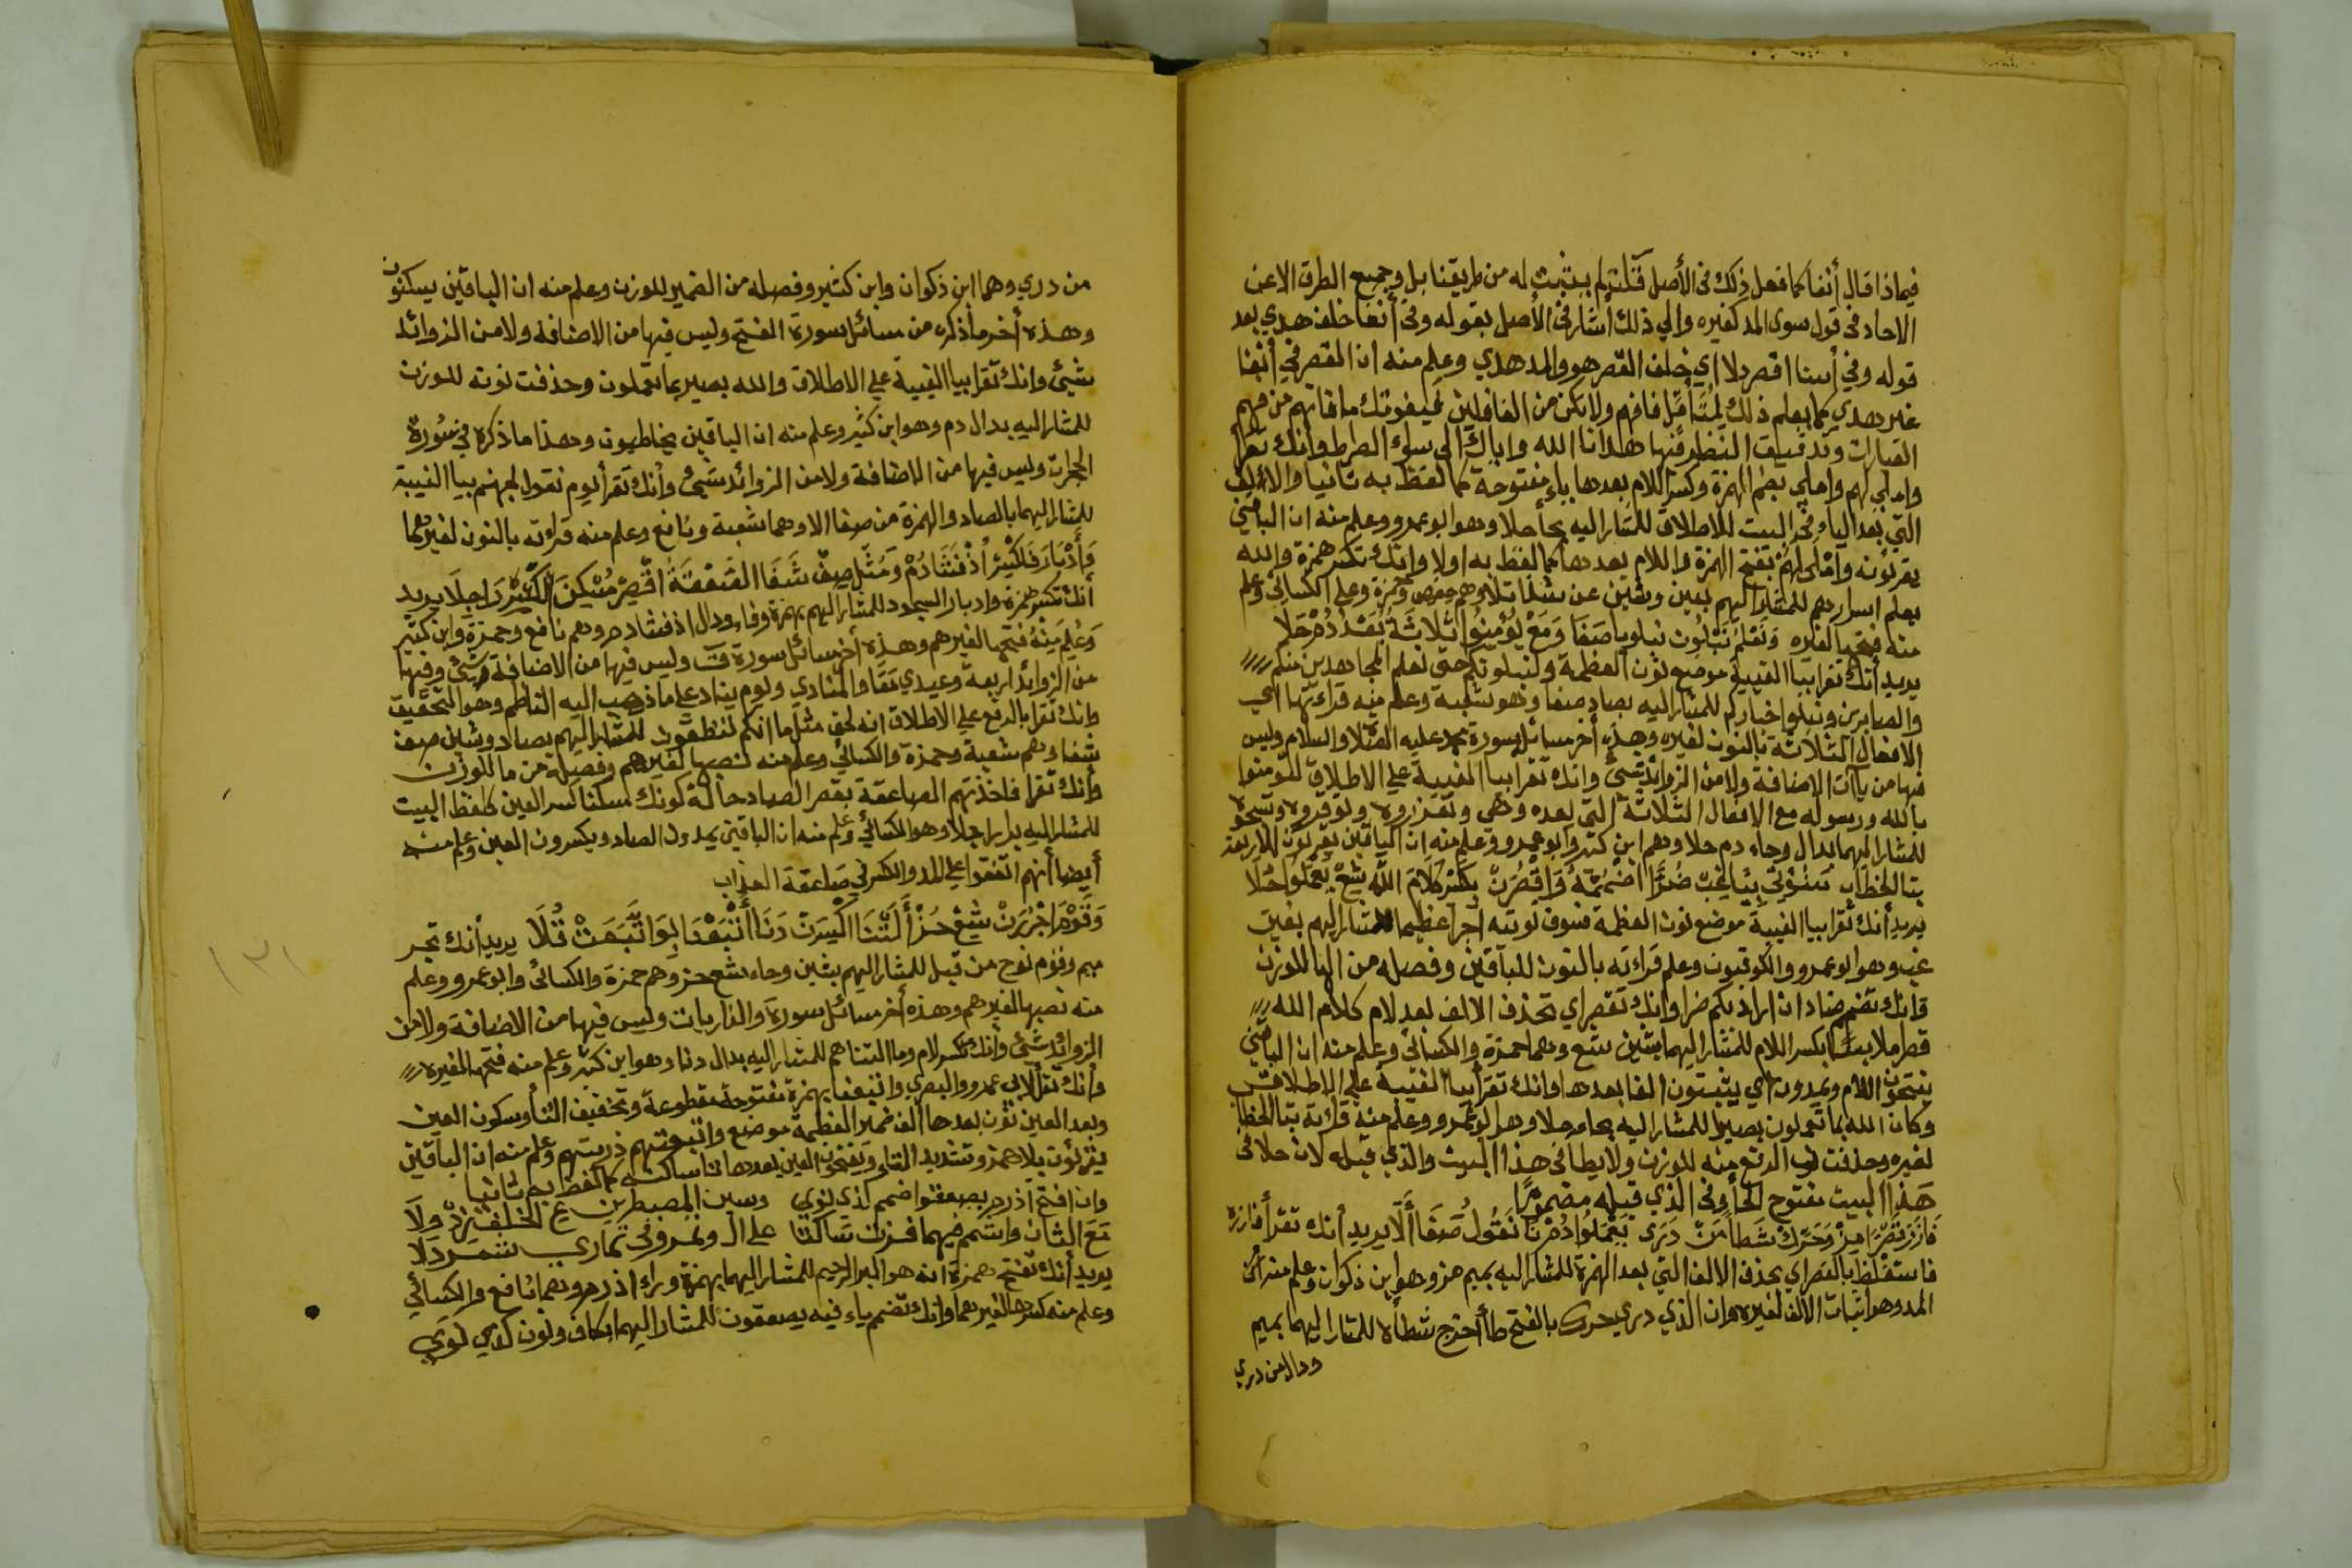 فيماذا قال أنفا كما فعل ذلك في الأصل قلت لم يثبت له من طريقنا بل وجميع الطرق الا عن
الاحاد في قول سوى المد كغيره والي ذلك أشار في الأصل بقوله وفي أنفا خلف هدي بعد
قوله وفي أسنا اقصر دلا اي خلف القصر هو والمد هدي وعلم منه ان القصر في أنفا
غير هدي كما يعلم ذلك فافهم ولا تكن من الغافلين فيفوتك ما فاتهم من فهم
العبارات وتدقيق النظر فيها هدانا الله واياك الى سواء الصراط وأنك تقرأ
واملي لهم واملي بضم الهمزة وكسر اللام بعدها ياء مفتوحة كما لفظ به ثانيا والالف
التي بعد الياء في البيت للاطلاق للمشار اليه بحا حلا وهو ابو عمرو وعلم منه ان الباقين
يقرئونه واملى لهم بفتح الهمزة واللام بعدها كما لفظ به اولا وانك تكسر همزة والله
يعلم اسرارهم للمشار اليهم بعين وشين عن شلا تلا وهم حفص وحمزة وعلى الكسائي وعلم
منه فتحها لغيره وَنَعْلَمْ نَبْلُوَنْ نبلو يا صَفَا وَمَعْ يُؤْمِنُوا ثَلَاثَةٌ بَعْدُ دُمْ حَلَا
يريد أنك تقرا بيا الغيبة موضع نون العظمة ولنبلونكم حتى نعلم المجاهدين منكم
والصابرين ونبلوا اخباركم للمشار اليه بصاد صفا وهو شعبة وعلم منه قراءتها اي
الافعال الثلاثة بالنون لغيره وهذه أخر مسائل سورة محمد عليه الصلاة والسلام وليس
فيها من ياآت الاضافة ولا من الزوائد شيئ وانك تقرا بيا الغيبة علي الاطلاق لتؤمنوا
بالله ورسوله مع الافعال الثلاثة التي بعده وهي وتعزروه وتوقروه وتسبحوه
للمشار اليهما بدال وحاء دم حلا وهم ابن كثير وابو عمرو وعلم منه ان الباقين يقرئون الاربعة
بتا الخطاب سَنُؤْتِي بِيَا غِبْ ضُرًّا اضْمُمْهُ وَاقْصُرَنْ بِكَسْرِ كَلَامَ اللَّهِ شِعْ يَعْمَلُوا حَلَا
يريد أنك تقرا بيا الغيبة موضع نون العظمة فسوف نوتيه أجرا عظيما للمشار اليهم بغين
غب وهو ابو عمرو والكوفيون وعلم قراءته بالنون للباقين وفصله من اليا للوزن
وانك تضم ضاد ان اراد بكم ضرا وانك تقصر اي تحذف الالف بعد لام كلام الله
قصرا ملابسا بكسر اللام للمشار اليهما بشين شع وهما حمزة والكسائي وعلم منه ان الباقين
يفتحون اللام ويمدون اي يثبتون الفا بعدها وانك تقرا بيا الغيبة علي الاطلاق
وكان الله بما تعملون بصيرا للمشار اليه بحاء حلا وهو ابو عمرو وعلم منه قراءته بتا الخطاب
لغيره وحذفت نون الرفع منه للوزن ولا يطا في هذا البيت والذي قبله لان حلا في
هذا البيت مفتوح الحا وفي الذي قبله مضموم
فَآزَرَ قَصْرًا مِزْ وَحَرِّكْ شَطَأ مَنْ دَرَى يَعْمَلُوا دُمْ نَا نَقُولُ صَفَا أَلَا يريد أنك تقرأ فازره
فاستغلظ بالقصر اي بحذف الالف التي بعد الهمزة للمشار اليه بميم مز وهو ابن ذكوان وعلم منه أن
المد وهو اثبات الالف لغيره وان الذي دري يحرك بالفتح طا أخرج شطأه للمشار اليهما بميم
ودال من دري
من دري وهما ابن ذكوان وابن كثير وفصله من الضمير للوزن وعلم منه ان الباقين يسكنون
وهذه أخر ما أذكره من مسائل سورة الفتح وليس فيها من الاضافة ولا من الزوائد
شيئ وانك تقرا بيا الغيبة علي الاطلاق والله بصير بما تعملون وحذفت نونه للوزن
للمشار اليه بدال دم وهو ابن كثير وعلم منه ان الباقين يخاطبون وهذا ما ذكره في سورة
الحجرات وليس فيها من الاضافة ولا من الزوائد شيئ وأنك تقرأ يوم نقول لجهنم بيا الغيبة
للمشار اليهما بالصاد والهمزة من صفا الا وهما شعبة ونافع وعلم منه قراءته بالنون لغيرهما
وَأَدْبَارَ فَلَكْسِرْ اذْفَشَا دُمْ وَمَثِّل صِفْ شَفَا الصَّعْقَةُ اقْصِرْ مُسْكِنَ الْكَسْرِ رَاجِلَا يريد
أنك تكسر همزة وادبار السجود للمشار اليهم بهمزة وفاء ودال اذفشا دم وهم نافع وحمزة وابن كثير
وَعُلِمَ مِنْهُ فتحها لغيرهم وهذه أخر مسائل سورة ق وليس فيها من الاضافة شئ وفيها
من الزوائد اربعة وعيدي معا والمنادي ويوم يناد على ما ذهب اليه الناظم وهو التحقيق
وانك تقرا بالرفع علي الاطلاق انه لحق مثل ما انكم تنطقون للمشار اليهم بصاد وشين صف
شفاء وهم شعبة وحمزة والكسائي وعلم منه نصبها لغيرهم وفصيلة من ما للوزن
وأنك تقرا فاخذتهم الصاعقة بقصر الصاد حالة كونك مسكنا كسر العين كلفظ البيت
للمشار اليه برا راجلا وهو الكسائي وعلم منه ان الباقين يمدون الصاد ويكسرون العين وعلم منه
أيضا أنهم اتفقوا علي المد والكسر في صاعقة العذاب
وَقَوْمَ اجْرُرَنْ شِعْ حُزْ أَلَتْنَا اكْسِرَنْ دَنَا أَتْبَعْنَا لِبَوَاتَّبَعَتْ تُلَا يريد أنك تجر
ميم وقوم نوح من قبل للمشار اليهم بشين وحاء شع حز وهم حمزة والكسائي وابو عمرو وعلم
منه نصبها لغيرهم وهذه أخر مسائل سورة والذاريات وليس فيها من الاضافة ولا من
الزوائد شئ وأنك تكسر لام وما التناهم للمشار اليه بدال دنا وهو ابن كثير وعلم منه فتحها لغيره
وانك تقرأ لابي عمرو والبصري واتبعنا بهمزة مفتوحة مقطوعة وتخفيف التا وسكون العين
وبعد العين نون بعدها الف ضمير العظمة موضع واتبعتهم ذريتهم وعلم منه ان الباقين
يقرئون بلا همز وتشديد التاء ويفتحون العين بعدها تا ساكنة كما لفظ به ثانيا
وان افتح اذ رم يصعقوا ضم كذي نوي وسين المصيطرين ع الخلف زد ولا
مَعَ الثان واشمم فيهما فزت ساكتا على ال ونمروفي تماري شمردلا
يريد أنك تفتح همزة انه هو البر الرحيم للمشار اليهما بهمزة وراء اذ رم وهما نافع والكسائي
وعلم منه كسرها لغيرهما وانك تضم ياء فيه يصعقون للمشار اليهما بكاف ونون كذي نوي
١٣١